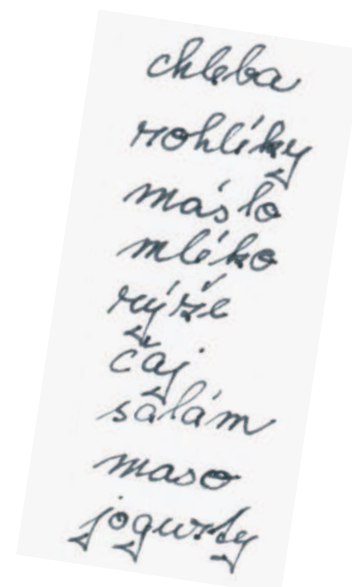 chleba
rohlíky
máslo
mléko
rýže
čaj
salám
maso
jogurty